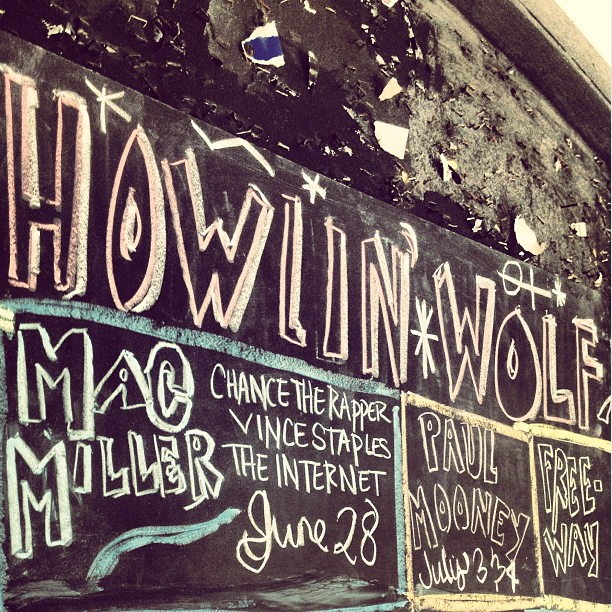 HOWLIN' WOLF
MAC
MILLER
CHANCE THE RAPPER
VINCE STAPLES
THE INTERNET
June 28
PAUL
MOONEY
July 3
FREE-
WAY